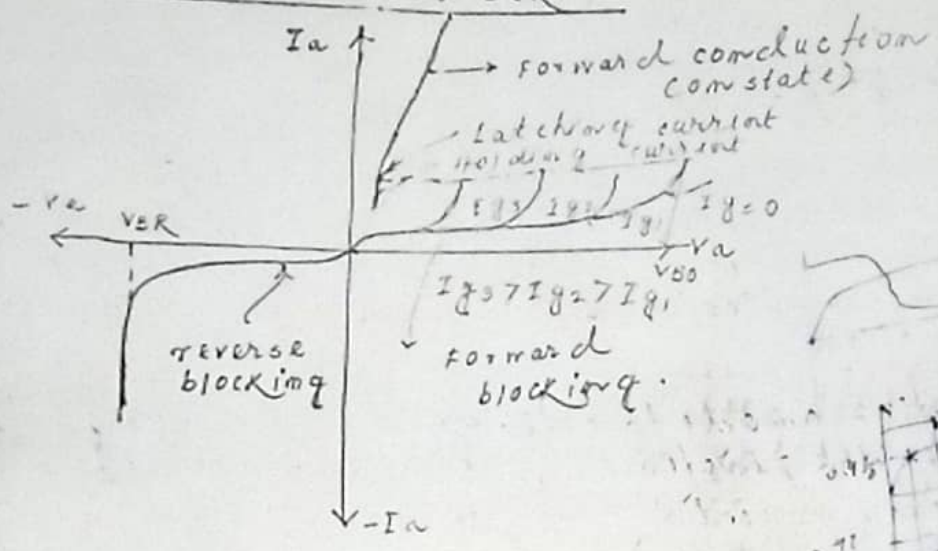 Ia
Forward conduction
(onstate)
Latching current
Holding current
-Va
VBR
Ig3 Ig2 Ig1
Ig=0
Va
VBO
Ig3>Ig2>Ig1
reverse
blocking
Forward
blocking.
-Ia